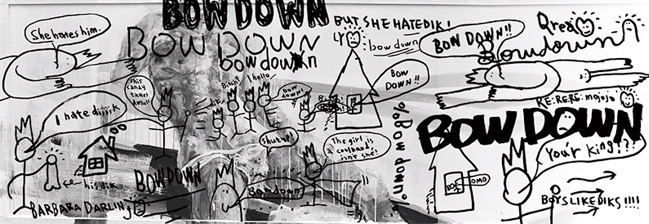 BOWDOWN
BUT SHE HATEDIK!
She hates him.
BOWDOWN
bow down
bow down
BOW DOWN!!
Bowdown
this
candy
bow down!
hello
BOW
DOWN!!
I hate diiiik
shut up!
The girl is
a coolname,
isn't she!
bow down
RE:RERE:mojojo
BOWDOWN
You'r king???
his dik
BOWDOWN
Bowdown
BOYS LIKE DIKS!!!!
BARBARA DARLING